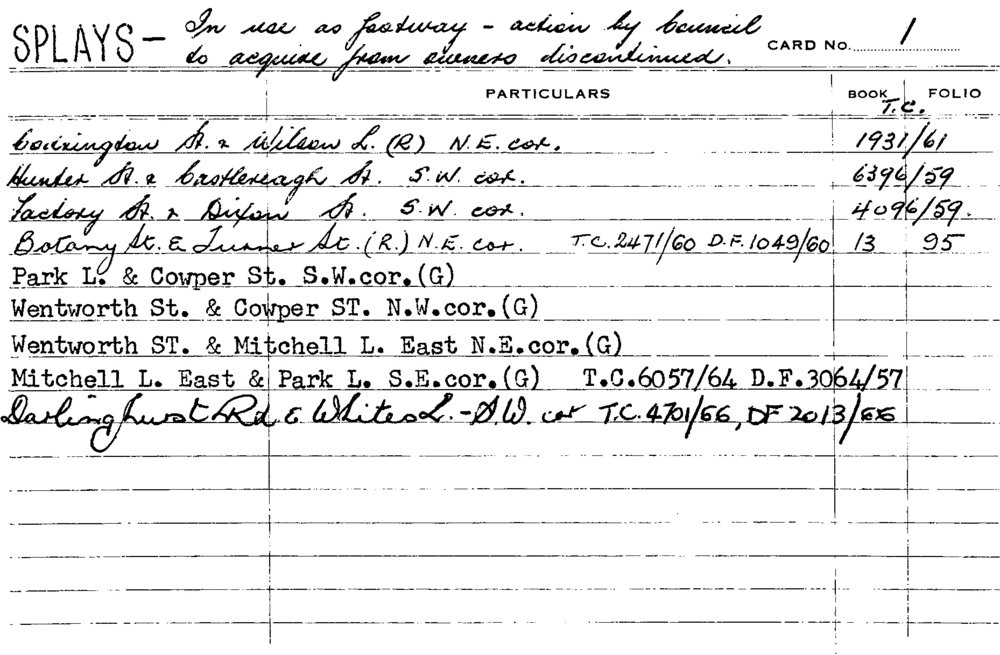 SPLAYS — In use as footway - action by Council
to acquire from owners discontinued.
CARD No. 1
PARTICULARS BOOK FOLIO
T.C.
Codrington St. & Wilson L. (R) N.E. cor. 1931/61
Hunter St. & Castlereagh St. S.W. cor. 6396/59
Factory St. & Dixon St. S.W. cor. 4096/59.
Botany St. & Turner St. (R.) N.E. cor. T.C. 2471/60 D.F. 1049/60 13 95
Park L. & Cowper St. S.W.cor.(G)
Wentworth St. & Cowper ST. N.W.cor.(G)
Wentworth ST. & Mitchell L. East N.E.cor.(G)
Mitchell L. East & Park L. S.E.cor.(G) T.C.6057/64 D.F.3064/57
Darlinghurst Rd & Whites L. - S.W. cor T.C. 4701/66, DF 2013/66